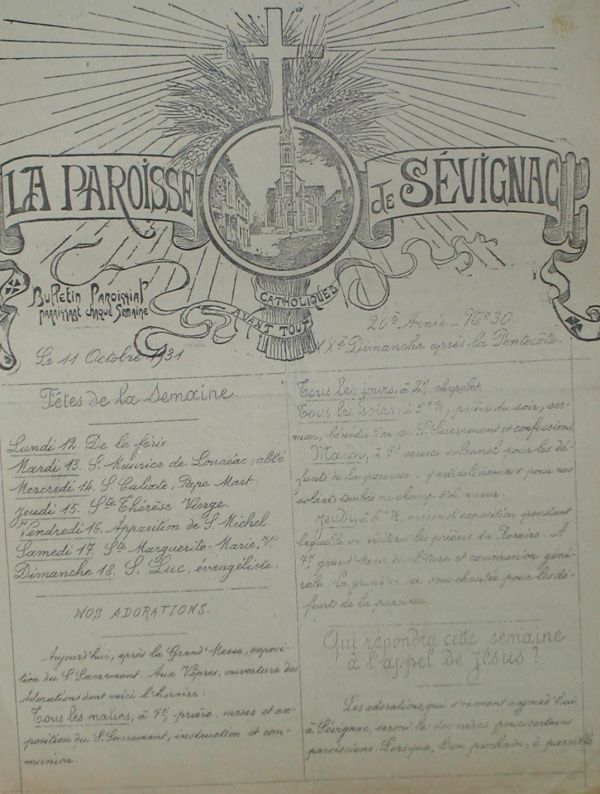 LA PAROISSE de SÉVIGNAC
Bulletin Paroissial
paraissant chaque semaine
CATHOLIQUES
AVANT TOUT
Le 11 Octobre 1931
20e Année - No 30
Dimanche après la Pentecôte.
Fêtes de la Semaine
Lundi 12. De la férie
Mardi 13. S. Maurice de Louaéac, abbé
Mercredi 14. S. Calixte, Pape Mart.
Jeudi 15. Ste Thérèse Vierge.
Vendredi 16. Apparition de S. Michel
Samedi 17. Ste Marguerite-Marie, V.
Dimanche 18. S. Luc, évangéliste.
NOS ADORATIONS.
Aujourd'hui, après la Grand'Messe, exposi-
tion du S. Sacrement. Aux Vêpres, ouverture des
Adorations dont voici l'horaire.
Tous les matins, à prière, messe et ex-
position du S. Sacrement, instruction et com-
munion.
Tous les jours, à chapelet.
Tous les soirs, à prière du soir, ser-
mon, bénédiction du S. Sacrement et confessions
à service solennel pour les dé-
funts de la paroisse, particulièrement pour nos
soldats tombés au champ d'honneur.
Jeudi, à messe d'exposition pendant
laquelle on récitera les prières du Rosaire. A
grand'Messe de clôture et communion géné-
rale. La grand'messe sera chantée pour les dé-
funts de la paroisse.
Qui répondra cette semaine
à l'appel de Jésus ?
Les adorations, qui s'ouvrent aujourd'hui
à Sévignac, seront les dernières pour certains
paroissiens. Lorsque, l'an prochain, à pareille